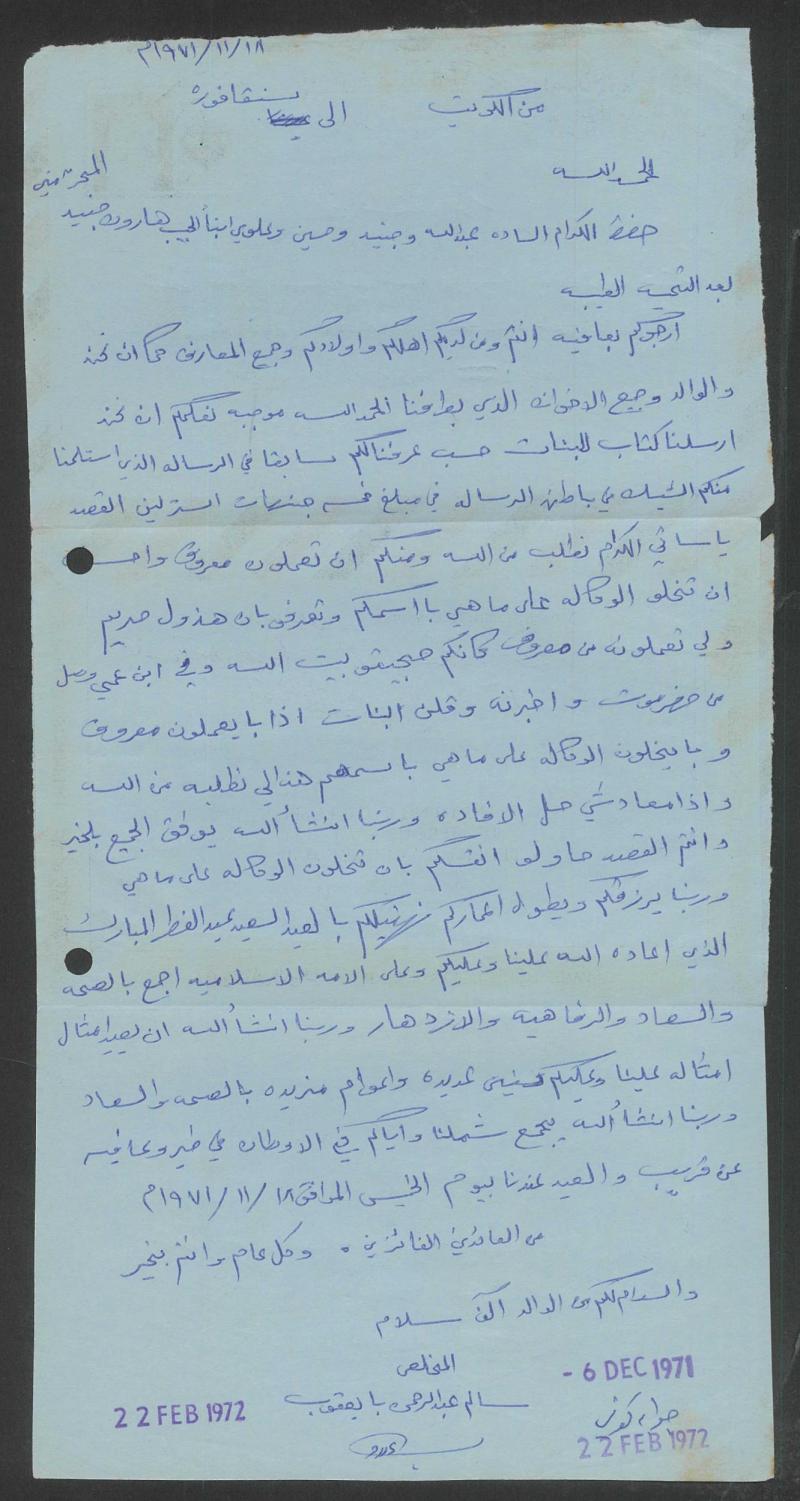 ١٨/١١/١٩٧١م
من الكويت الى سنقافوره
الحمد لله
المحترمين
حضرة الكرام الساده عبدالله وجنيد وحسين وعلوي ابنا الحبيب هارون جنيد
بعد التحيه الطيبه
ارجوكم بعافيه انتم ومن لديكم اهلكم واولادكم وجمع المعارف كما ان نحن
والوالد وجميع الاخوان الذي بطرافنا الحمدالله موجبه نفلكم ان نحن
ارسلنا كتاب للبنات حسب عرفنالكم سابقا في الرساله الذي استلمنا
منكم الشيك في باطن الرساله في مبلغ خمسه جنيهات استرلين القصد
ياساتي الكرام نطلب من الله ومنكم ان تعملون معروف واحسـ
ان تخلو الوكاله على ماهي باسمكم وتعرفو بان هذول حريم
ولي تعملونه من معروف كانكم حجيتو بيت الله وفي ابن عمي وصل
من حضرموت واخبرنه وقلن البنات اذا با يعملون معروف
وبا يخلون الوكاله على ماهي باسمهم هذالي نطلبه من الله
واذا معاد شي حل الافاده وربنا انشأالله يوفق الجمع بلخير
وانتم القصد حاولو انفسكم بان تخلون الوكاله على ماهي
وربنا يرزقكم ويطول اعماركم نهنيكم بالعيد السعيد عيد الفطر المبارك
الذي اعاده الله علينا وعليكم وعلى الامه الاسلاميه اجمع بالصحه
والسعاد والرفاهيه والازدهار وربنا انشأالله ان يعيد امثال
امثاله علينا وعليكم سنين عديده واعوام مزيده بالصحه والسعاد
وربنا انشأالله يجمع شملنا واياكم في الاوطان في خير وعافيه
عن قريب والعيد عندنا بيوم الخميس الموافق ١٨/١١/١٩٧١م
من العائدين الفائزين . وكل عام وانتم بخير
والسلام لكم من الوالد الف سلام
المخلص
- 6 DEC 1971
سالم عبدالرحمن با يعقوب
22 FEB 1972
22 FEB 1972